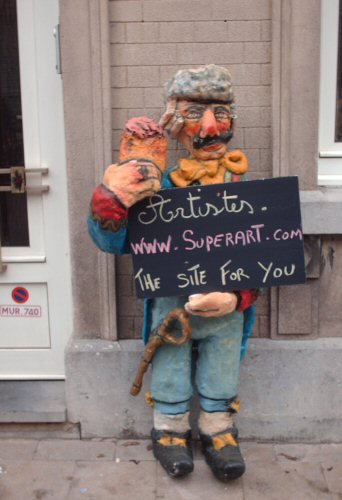 Artistes.
www.SUPERART.com
THE SITE FOR YOU
MUR.740